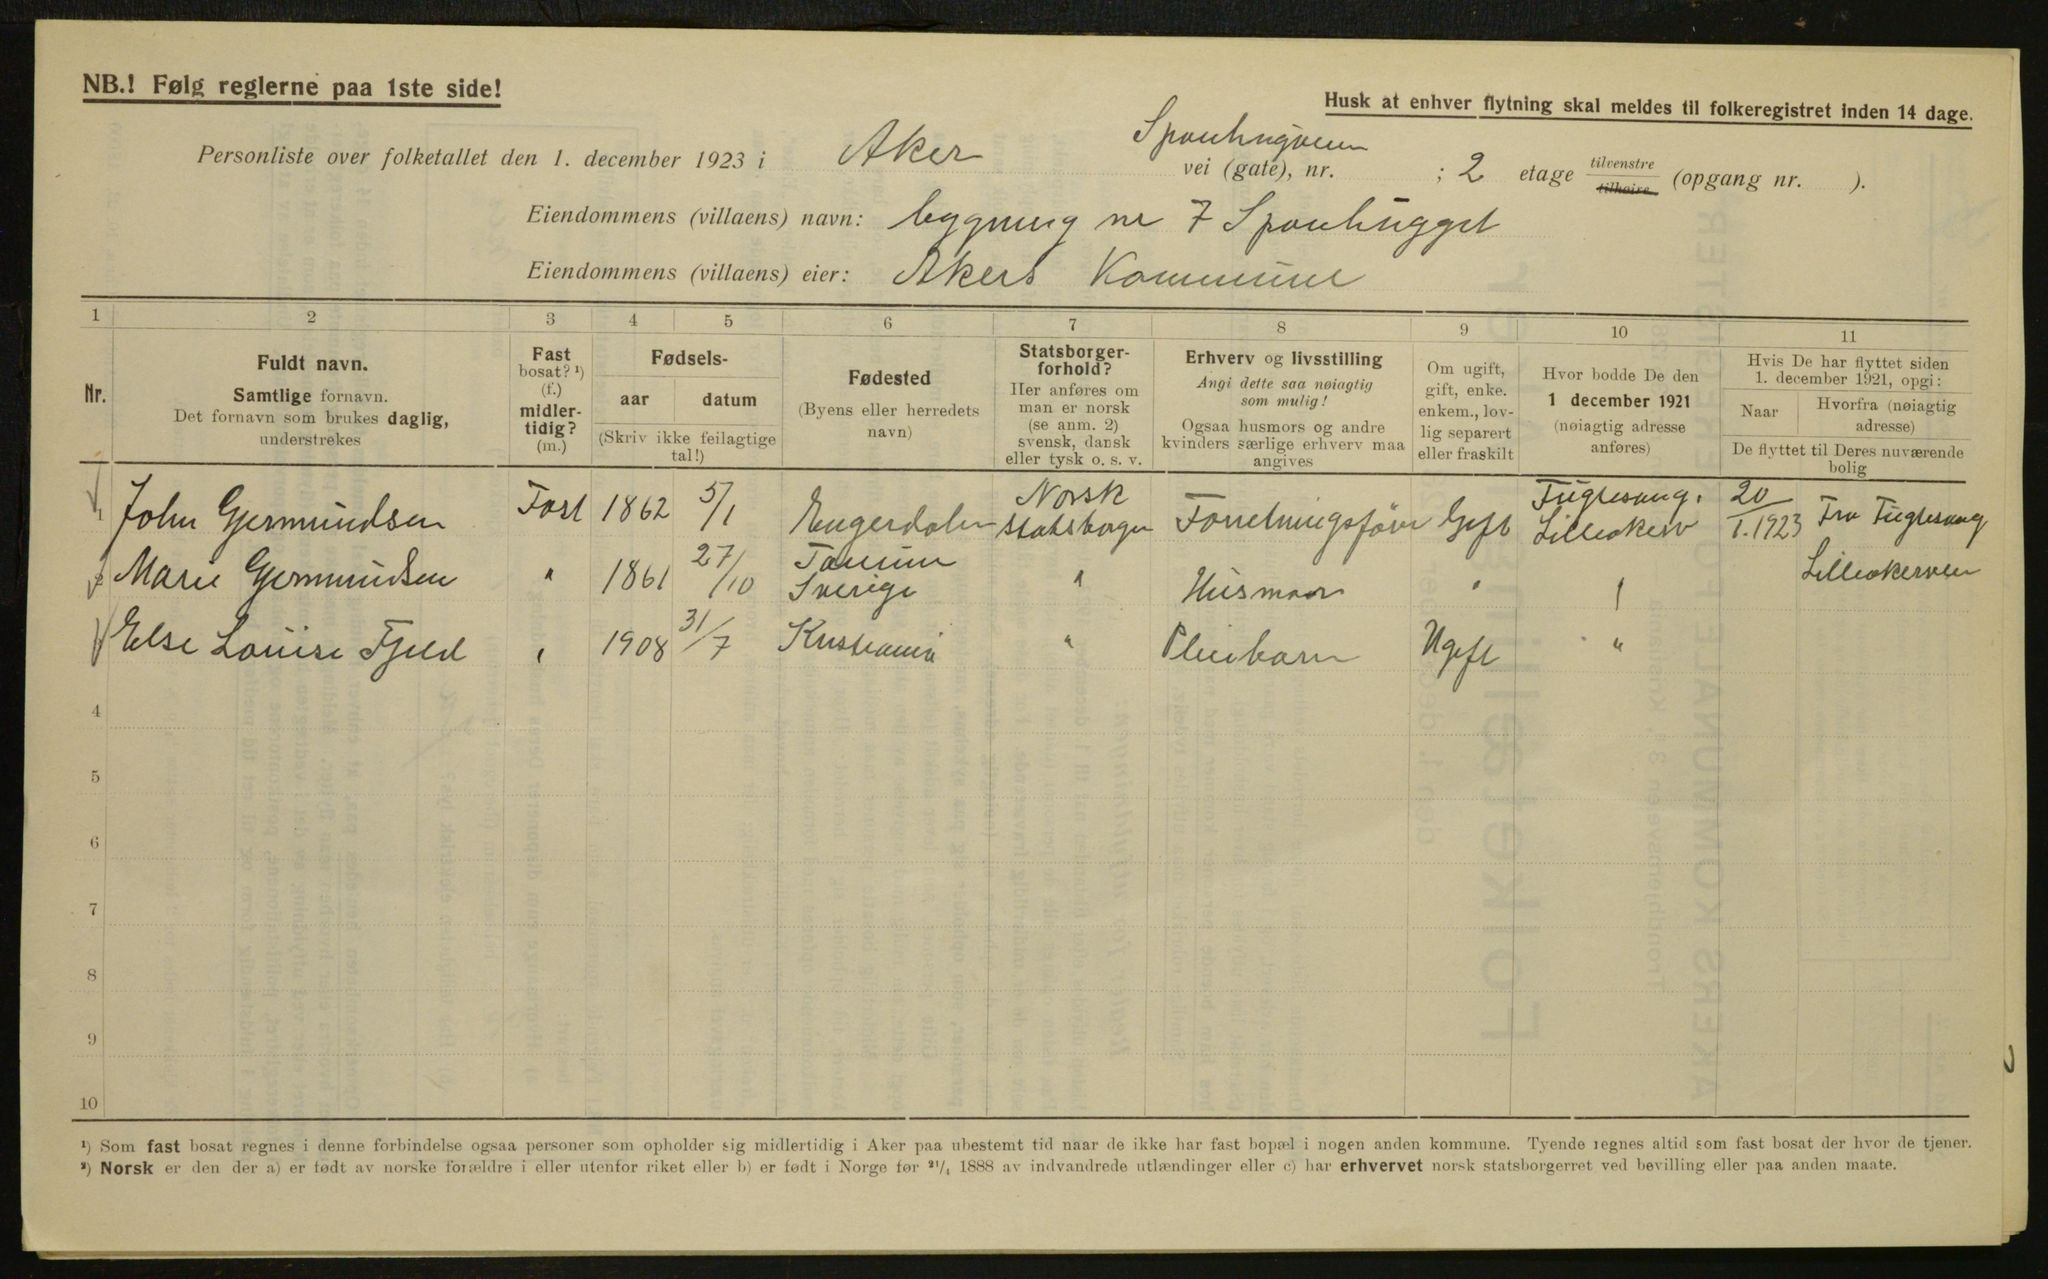 NB.! Følg reglerne paa 1ste side!
Husk at enhver flytning skal meldes til folkeregistret inden 14 dage.
Personliste over folketallet den 1. december 1923 i Aker Sponhugveien vei (gate), nr. ; 2 etage tilvenstre tilhøire (opgang nr. ).
Eiendommens (villaens) navn: bygning nr 7 Sponhugget
Eiendommens (villaens) eier: Akers Kommune
1 2 3 4 5 6 7 8 9 10 11
Nr.
Fuldt navn.
Samtlige fornavn.
Det fornavn som brukes daglig,
understrekes
Fast
bosat? ¹)
(f.)
midler-
tidig?
(m.)
Fødsels-
aar datum
(Skriv ikke feilagtige
tal!)
Fødested
(Byens eller herredets
navn)
Statsborger-
forhold?
Her anføres om
man er norsk
(se anm. 2)
svensk, dansk
eller tysk o. s. v.
Erhverv og livsstilling
Angi dette saa nøiagtig
som mulig!
Ogsaa husmors og andre
kvinders særlige erhverv maa
angives
Om ugift,
gift, enke.
enkem., lov-
lig separert
eller fraskilt
Hvor bodde De den
1 december 1921
(nøiagtig adresse
anføres)
Hvis De har flyttet siden
1. december 1921, opgi:
Naar
Hvorfra (nøiagtig
adresse)
De flyttet til Deres nuværende
bolig
1 John Gjermundsen Fast 1862 5/1 Engerdalen Norsk Statsborger Forretningsfører Gift Fuglesang. Lilleakerv 20/1.1923 Fra Fuglesang
2 Marie Gjermundsen " 1861 27/10 Tanum Sverige " Husmoor " " Lilleakerveien
Else Louise Fjeld " 1908 31/7 Kristiania " Pleiebarn Ugift "
4
5
6
7
8
9
10
¹) Som fast bosat regnes i denne forbindelse ogsaa personer som opholder sig midlertidig i Aker paa ubestemt tid naar de ikke har fast bopæl i nogen anden kommune. Tyende regnes altid som fast bosat der hvor de tjener.
²) Norsk er den der a) er født av norske forældre i eller utenfor riket eller b) er født i Norge før ²¹/₁ 1888 av indvandrede utlændinger eller c) har erhvervet norsk statsborgerret ved bevilling eller paa anden maate.